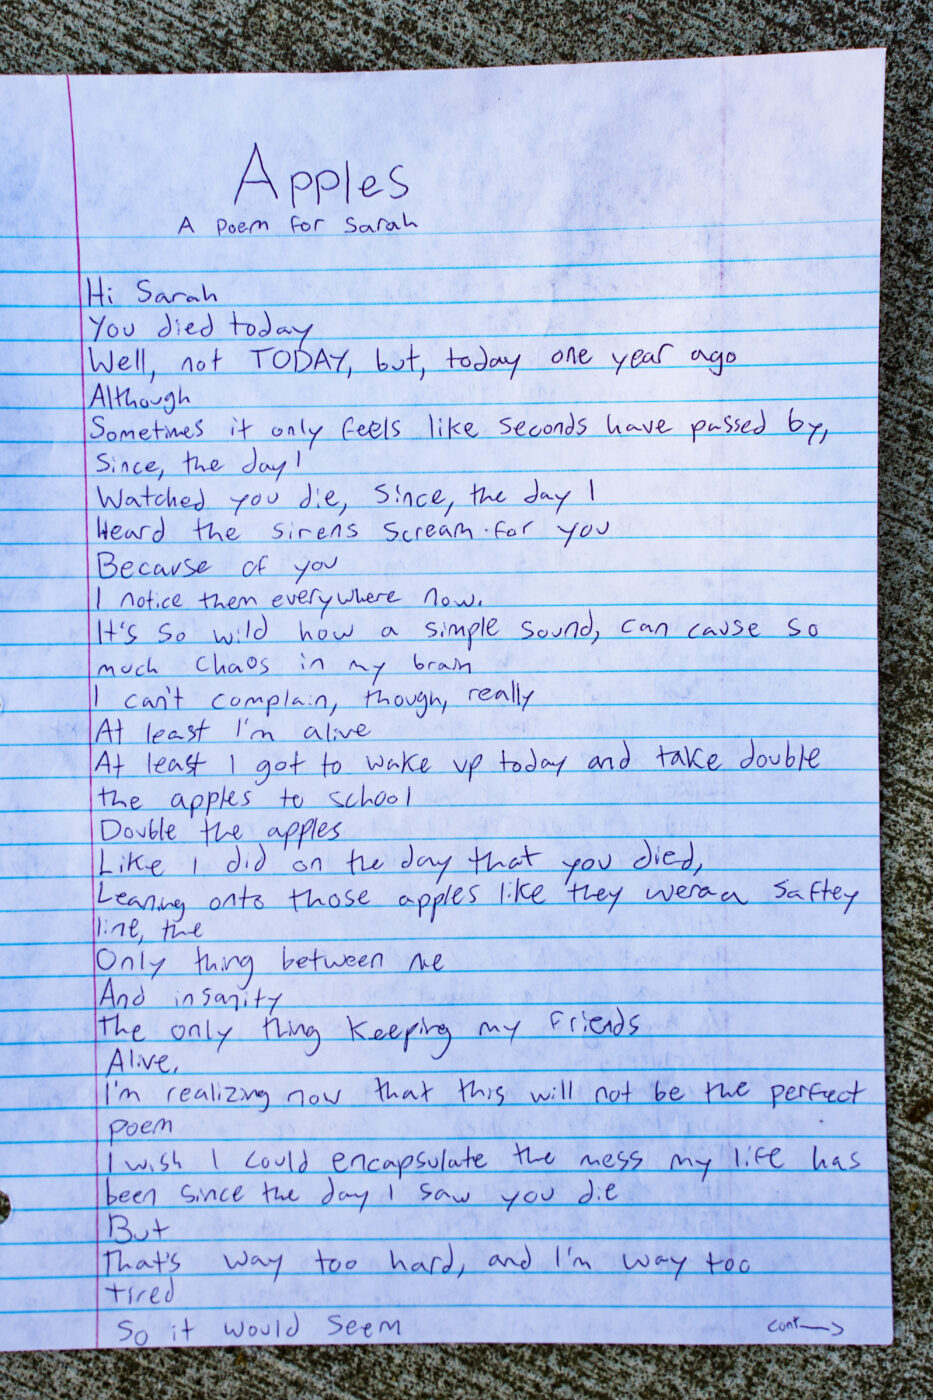 Apples
A Poem for Sarah
Hi Sarah
You died today
Well, not TODAY, but, today one year ago
Although
Sometimes it only feels like seconds have passed by,
Since, the day I
Watched you die, Since, the day I
Heard the sirens scream for you
Because of you
I notice them everywhere now.
It's so wild how a simple sound, can cause so
much chaos in my brain
I can't complain, though, really
At least I'm alive
At least I got to wake up today and take double
the apples to school
Double the apples
Like I did on the day that you died,
Leaning onto those apples like they were a saftey
line, the
Only thing between me
And insanity
The only thing keeping my friends
Alive,
I'm realizing now that this will not be the perfect
poem
I wish I could encapsulate the mess my life has
been since the day I saw you die
But
That's way too hard, and I'm way too
tired
So it would seem
cont→